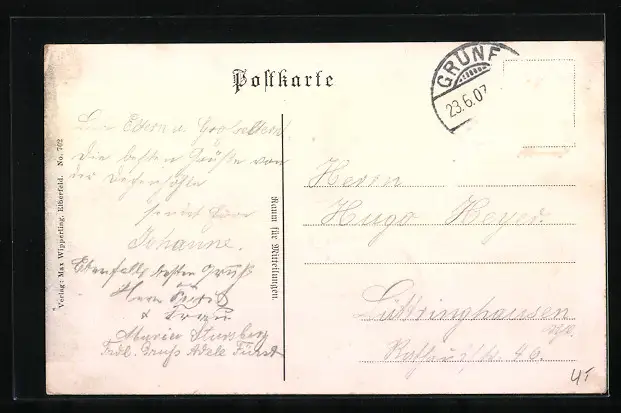 Postkarte
GRÜNE
23.6.07
Eltern u. Großeltern
die besten Grüße von
der Dechenhöhle
sendet Eure
Johanne.
Ebenfalls besten Gruß
Herm
& Frau
Maria Stursberg
Frdl. Gruß Adele Fürst
Verlag: Max Wipperling, Elberfeld. No. 702
Raum für Mitteilungen
Herrn
Hugo Heyer
Lüttringhausen
Rathausstr. 46.